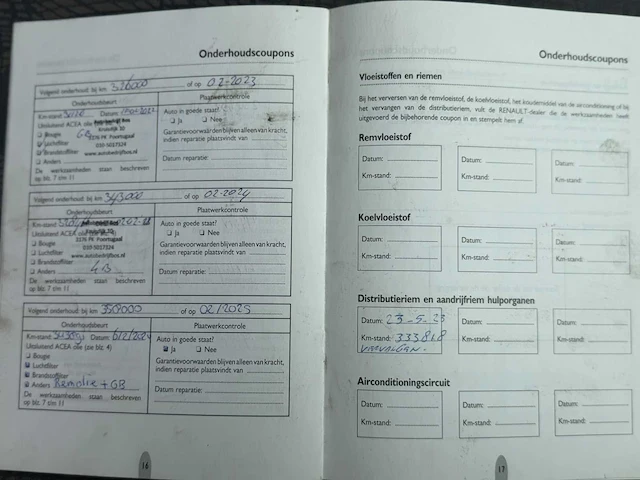 Onderhoudscoupons
Volgend onderhoud: bij km 326000 of op 02-2023
Onderhoudsbeurt Plaatwerkcontrole
Km-stand: Datum:
Auto in goede staat?
Uitsluitend ACEA olie
Ja Nee
Bougie GB
Kruisdijk 10
3176 PK Poortugaal
Luchtfilter
010-5017324
Garantievoorwaarden blijven alleen van kracht,
Brandstoffilter
www.autobedrijfbos.nl
indien reparatie plaatsvindt van
Anders
De werkzaamheden staan beschreven
op blz. 7 t/m 11
Datum reparatie:
Volgend onderhoud: bij km 343000 of op 02-2024
Onderhoudsbeurt Plaatwerkcontrole
Km-stand Auto in goede staat?
Uitsluitend ACEA olie
3176 PK Poortugaal
Ja Nee
Bougie
010-5017324
Luchtfilter
www.autobedrijfbos.nl
Garantievoorwaarden blijven alleen van kracht,
indien reparatie plaatsvindt voor
Brandstoffilter
Anders
De werkzaamheden staan beschreven
op blz. 7 t/m 11
Datum reparatie:
Volgend onderhoud: bij km 358000 of op 02/2025
Onderhoudsbeurt Plaatwerkcontrole
Km-stand Datum: 6/2/2024
Auto in goede staat?
Uitsluitend ACEA olie (zie blz. 4)
Ja Nee
Bougie
Luchtfilter
Garantievoorwaarden blijven alleen van kracht,
indien reparatie plaatsvindt van
Brandstoffilter
Anders Remolie + GB
Datum reparatie:
De werkzaamheden staan beschreven
op blz. 7 t/m 11
16
Onderhoudscoupons
Vloeistoffen en riemen
Bij het verversen van de remvloeistof, de koelvloeistof, het koudemiddel van de airconditioning of bij
het vervangen van de distributieriem, vult de RENAULT-dealer die de werkzaamheden heeft
uitgevoerd de bijbehorende coupon in en stempelt hem af.
Remvloeistof
Datum: Datum: Datum:
Km-stand: Km-stand: Km-stand:
Koelvloeistof
Datum: Datum: Datum:
Km-stand: Km-stand: Km-stand:
Distributieriem en aandrijfriem hulporganen
Datum: 23-5-23 Datum: Datum:
Km-stand: 333818 Km-stand: Km-stand:
Airconditioningscircuit
Datum: Datum: Datum:
Km-stand: Km-stand: Km-stand:
17